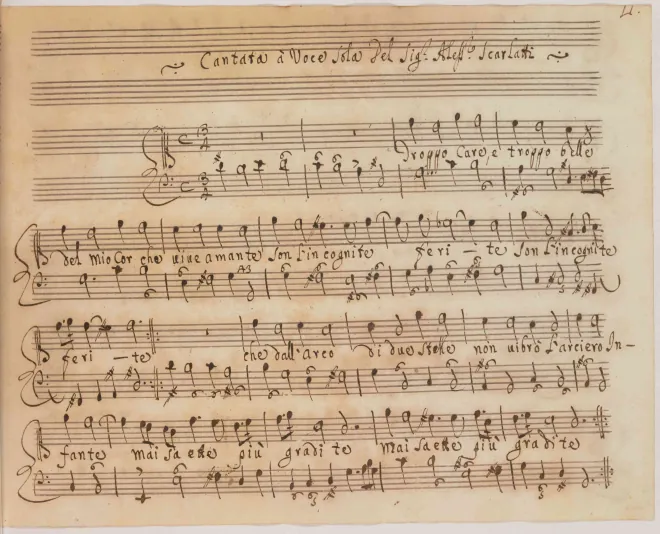 Cantata à Voce Sola Del Sig.r Aless.o Scarlatti
Troppo Care, e troppo belle
del mio Cor che uiue amante son l'incognite feri - te son l'incognite
feri - te che dall'arco di due stelle non uibrò l'arciero In-
fante mai saette più gradite mai saette più gradite